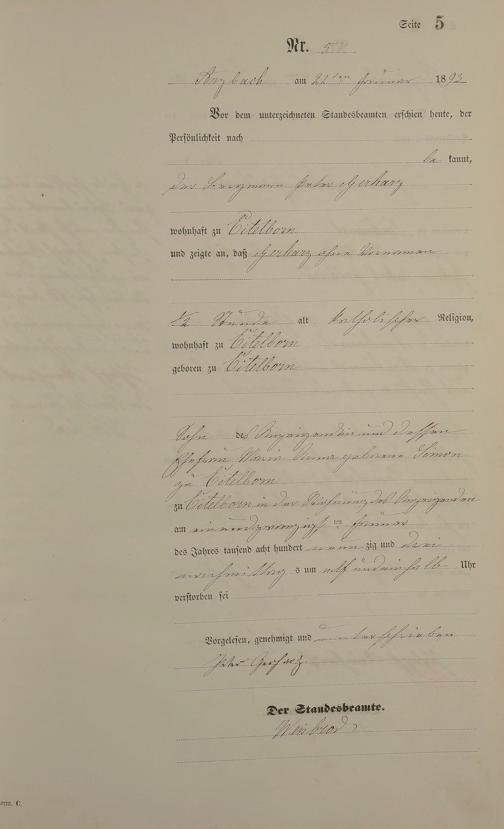 Seite 5
Nr. 5
Arzbach am 22ten Januar 1893
Vor dem unterzeichneten Standesbeamten erschien heute, der
Persönlichkeit nach
be kannt,
der Bergmann Peter Gerharz
wohnhaft zu Eitelborn
und zeigte an, daß Gerharz ohne Vornamen
1/2 Stunde alt katholischer Religion,
wohnhaft zu Eitelborn
geboren zu Eitelborn
Sohn des Anzeigenden und dessen
Ehefrau Maria Anna geborene Simon
zu Eitelborn
zu Eitelborn in der Wohnung des Anzeigenden
am ein und zwanzigsten Januar
des Jahres tausend acht hundert neun zig und drei
nachmittag s um elf und einhalb Uhr
verstorben sei
Vorgelesen, genehmigt und unterschrieben
Peter Gerharz
Der Standesbeamte.
Weisbrod
C.